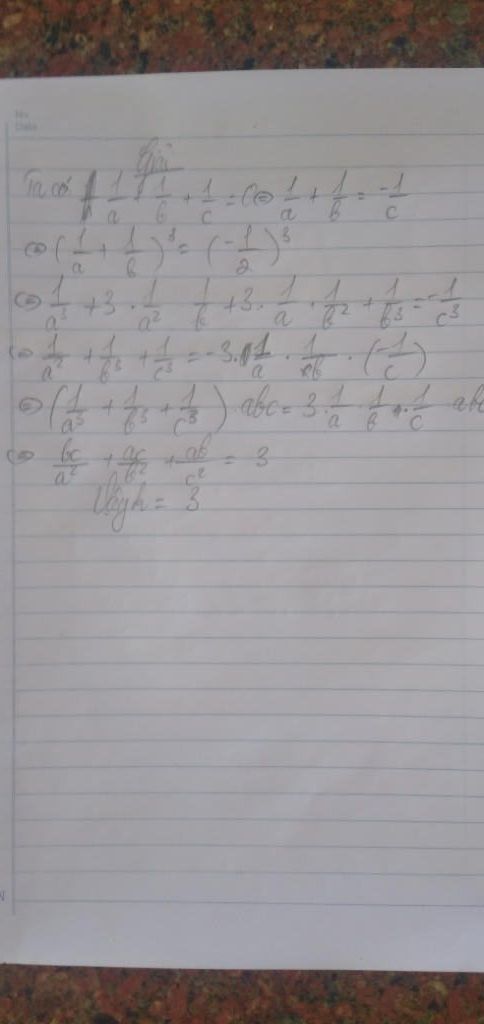 No.
Date
Giải
Ta có 1/a + 1/b + 1/c = 0 ⇔ 1/a + 1/b = -1/c
⇔ (1/a + 1/b)³ = (-1/2)³
⇔ 1/a³ + 3 · 1/a² 1/b + 3 · 1/a · 1/b² + 1/b³ = -1/c³
⇔ 1/a² + 1/b³ + 1/c³ = -3 · 1/a · 1/b · (-1/c)
⇔ (1/a³ + 1/b³ + 1/c³) · abc = 3 · 1/a · 1/b · 1/c abc
⇔ bc/a² + ac/b² + ab/c² = 3
Vậy = 3